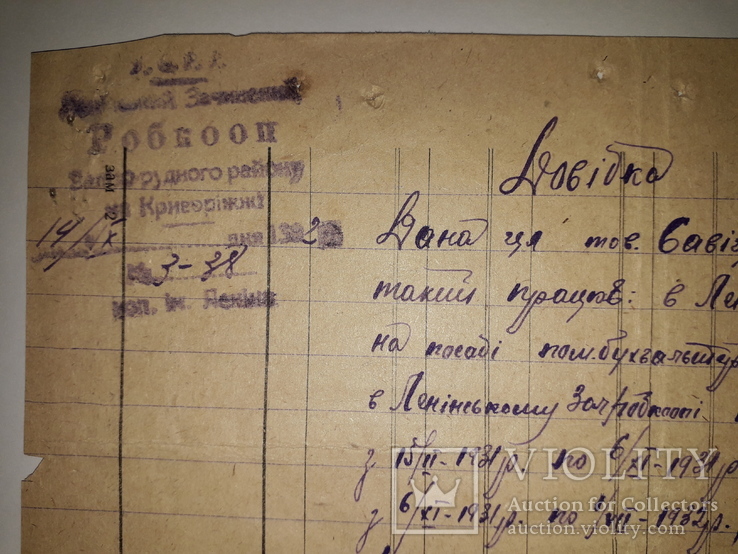 У.С.Р.Р.
Зачинений
Робкооп
рудного району
на Криворіжжі
14/IX дня 1932
№ 3-38
коп. ім. Леніна
Довібка
Дана ця тов. Савіц
такий працюв: в Лен
на посаді пом.бухгальтер
в Ленінському Зачробкоопі
з 15/II-1931р. по 6/XI-1931р
з 6/XI-1931р. по /VII-1932р.
VIOLITY
Auction for Collectors
auction.violity.com